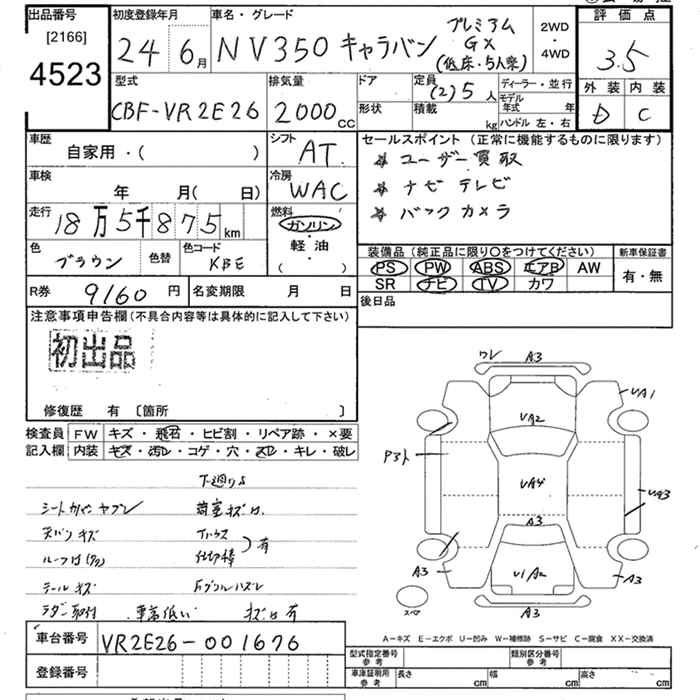 出品番号
[2166]
4523
初度登録年月
24 6月
車名・グレード
NV350 キャラバン
プレミアム
GX
(低床・5人乗)
2WD
・
4WD
評価点
3.5
外装 内装
D C
型式
CBF-VR2E26
排気量
2000cc
ドア
形状
定員
(2)5人
積載
kg
ディーラー・並行
モデル年式 年
ハンドル 左・右
車歴
自家用・( )
シフト
AT
車検
年 月( 日)
冷房
WAC
走行
18万5千875km
燃料
ガソリン・
軽油・
( )
色
ブラウン
色替
色コード
KBE
セールスポイント (正常に機能するものに限ります)
☆ ユーザー買取
☆ ナビ テレビ
☆ バックカメラ
装備品(純正品に限り○をつけてください)
PS PW ABS エアB AW
SR ナビ TV カワ
新車保証書
有・無
R券
9160円
名変期限 月 日
後日品
注意事項申告欄(不具合内容等は具体的に記入して下さい)
初出品
修復歴 有 [箇所 ]
検査員記入欄
FW キズ・飛石・ヒビ割・リペア跡・×要
内装 キズ・汚レ・コゲ・穴・スレ・キレ・破レ
下廻りS
シートカバーヤブレ 荷室キズ有
天バンキズ
有
テールキズ
キズ有
車台番号
VR2E26-001676
登録番号
ワレ A3
UA1
UA2
P3ト
UA4
UA3
A3
A3
U1A2
A3
A3
スペア
A-キズ E-エクボ U-凹み W-補修跡 S-サビ C-腐食 XX-交換済
型式指定番号
参考
類別区分番号
参考
車庫証明用
参考
長さ cm 幅 cm 高さ cm